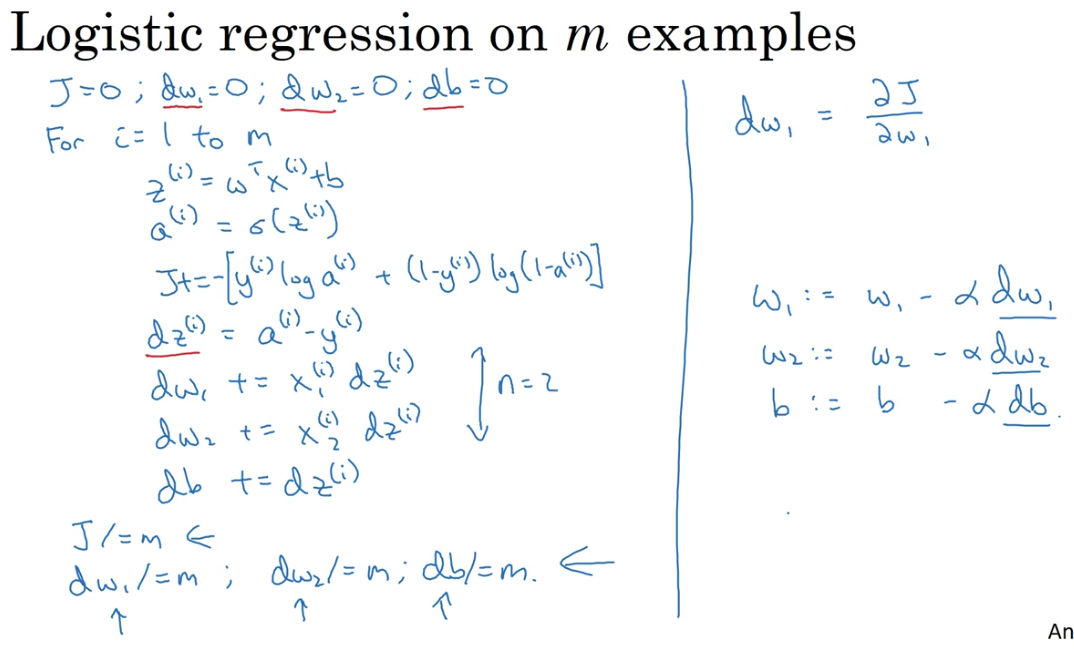 Logistic regression on m examples
J=0 ; dw₁=0 ; dw₂=0 ; db=0
For i=1 to m
z⁽ⁱ⁾ = wᵀx⁽ⁱ⁾+b
a⁽ⁱ⁾ = σ(z⁽ⁱ⁾)
J+=-[y⁽ⁱ⁾ log a⁽ⁱ⁾ + (1-y⁽ⁱ⁾) log(1-a⁽ⁱ⁾)]
dz⁽ⁱ⁾ = a⁽ⁱ⁾-y⁽ⁱ⁾
dw₁ += x₁⁽ⁱ⁾ dz⁽ⁱ⁾
dw₂ += x₂⁽ⁱ⁾ dz⁽ⁱ⁾
n=2
db += dz⁽ⁱ⁾
J/=m ←
dw₁/=m ; dw₂/=m ; db/=m. ←
dw₁ = ∂J/∂w₁
w₁ := w₁ - α dw₁
w₂ := w₂ - α dw₂
b := b - α db.
An